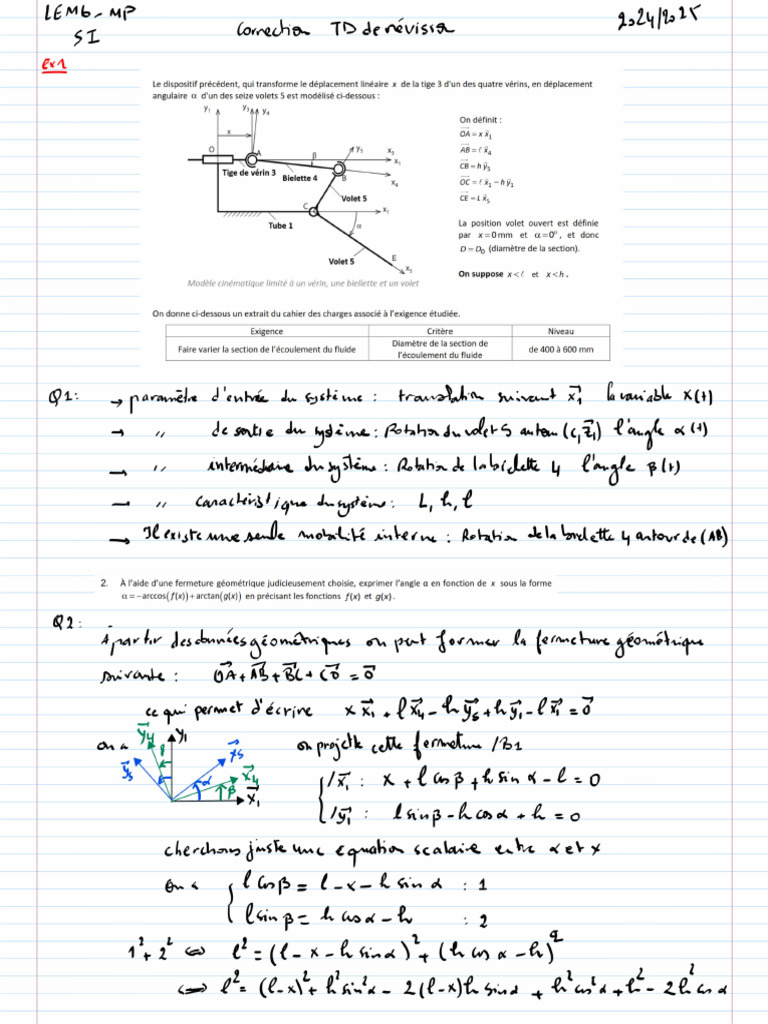 LEM6 - MP
SI
Correction TD de révision
2024/2025
Ex1
Le dispositif précédent, qui transforme le déplacement linéaire x de la tige 3 d'un des quatre vérins, en déplacement
angulaire α d'un des seize volets 5 est modélisé ci-dessous :
y₁
y₃
y₄
x
O
A
β
y₅
x₃
x₁
B
x₄
Tige de vérin 3
Bielette 4
Volet 5
C
x₁
Tube 1
α
Volet 5
E
x₅
Modèle cinématique limité à un vérin, une bieliette et un volet
On définit :
OA = x x₁
AB = ℓ x₄
CB = h y₅
OC = ℓ x₁ − h y₁
CE = L x₅
La position volet ouvert est définie
par x = 0 mm et α = 0°, et donc
D = D₀ (diamètre de la section).
On suppose x < ℓ et x < h .
On donne ci-dessous un extrait du cahier des charges associé à l'exigence étudiée.
Exigence Critère Niveau
Faire varier la section de l'écoulement du fluide Diamètre de la section de l'écoulement du fluide de 400 à 600 mm
Q1: → paramètre d'entrée du système : translation suivant x₁ la variable x(t)
→ " de sortie du système : Rotation du volet 5 autour (C, z₁) l'angle α(t)
→ " intermédiaire du système : Rotation de la bielette 4 l'angle β(t)
→ " caractéristique du système : L, h, l
→ Il existe une seule mobilité interne : Rotation de la bielette 4 autour de (AB)
2. À l'aide d'une fermeture géométrique judicieusement choisie, exprimer l'angle α en fonction de x sous la forme
α = −arccos(f(x)) + arctan(g(x)) en précisant les fonctions f(x) et g(x).
Q2:
À partir des données géométriques on peut former la fermeture géométrique
suivante : OA + AB + BC + CO = 0
ce qui permet d'écrire x x₁ + l x₄ − h y₅ + h y₁ − l x₁ = 0
on a
y₄
y₁
β
y₅
x₅
α
x₄
β
x₁
on projette cette fermeture /B1
/x₁ : x + l cos β + h sin α − l = 0
/y₁ : l sin β − h cos α + h = 0
cherchons juste une equation scalaire entre α et x
On a l cos β = l − x − h sin α : 1
l sin β = h cos α − h : 2
1² + 2² ⇔ l² = (l − x − h sin α)² + (h cos α − h)²
⇔ l² = (l − x)² + h² sin² α − 2(l − x) h sin α + h² cos² α + h² − 2h² cos α